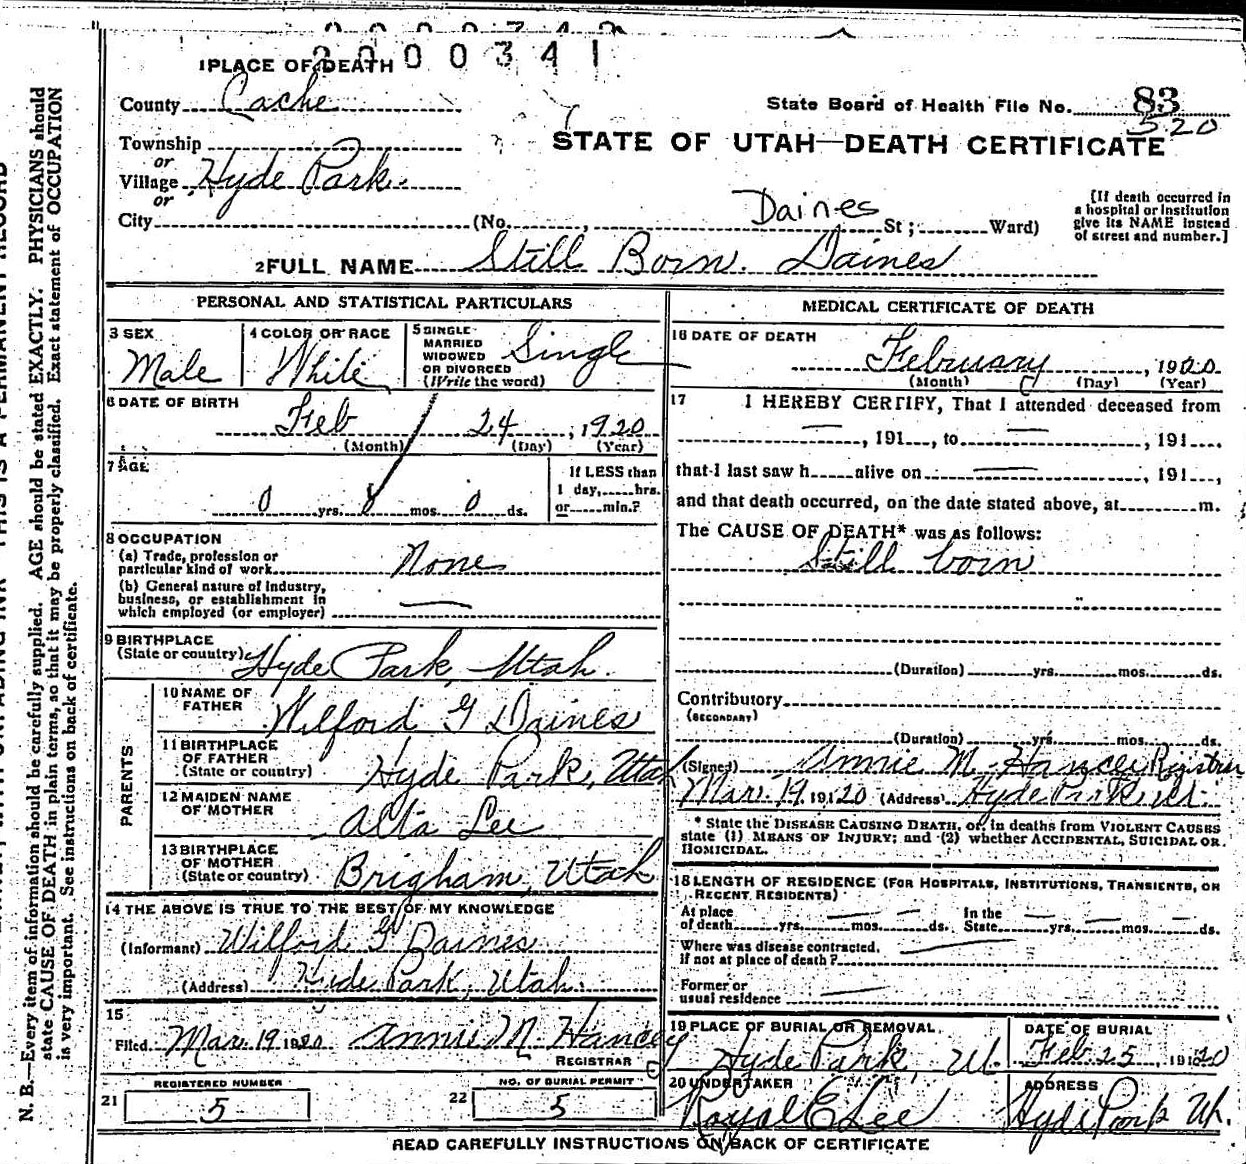 2000341
1 PLACE OF DEATH
County Cache
State Board of Health File No. 83
520
STATE OF UTAH—DEATH CERTIFICATE
Township
or
Village Hyde Park.
or
City (No. , Daines St ; Ward)
[If death occurred in
a hospital or institution
give its NAME instead
of street and number.]
2 FULL NAME Still Born. Daines
PERSONAL AND STATISTICAL PARTICULARS
3 SEX
Male
4 COLOR OR RACE
White
5 SINGLE
MARRIED
WIDOWED
OR DIVORCED
(Write the word)
Single
6 DATE OF BIRTH
Feb 24, 1920
(Month) (Day) (Year)
7 AGE
0 yrs. mos. 0 ds.
If LESS than
1 day, hrs.
or min.?
8 OCCUPATION
(a) Trade, profession or
particular kind of work None
(b) General nature of industry,
business, or establishment in
which employed (or employer) —
9 BIRTHPLACE
(State or country) Hyde Park, Utah.
PARENTS
10 NAME OF
FATHER
Wilford G Daines
11 BIRTHPLACE
OF FATHER
(State or country) Hyde Park, Utah
12 MAIDEN NAME
OF MOTHER
Alta Lee
13 BIRTHPLACE
OF MOTHER
(State or country) Brigham, Utah
14 THE ABOVE IS TRUE TO THE BEST OF MY KNOWLEDGE
(Informant) Wilford G Daines
(Address) Hyde Park, Utah.
15
Filed Mar. 19 1920 Annie M. Hancey
REGISTRAR
REGISTERED NUMBER
21 5
NO. OF BURIAL PERMIT
22 5
MEDICAL CERTIFICATE OF DEATH
16 DATE OF DEATH
February , 1920
(Month) (Day) (Year)
17 I HEREBY CERTIFY, That I attended deceased from
— , 191 , to — , 191 .
that I last saw h alive on — , 191 ,
and that death occurred, on the date stated above, at m.
The CAUSE OF DEATH* was as follows:
Still born
(Duration) yrs. mos. ds.
Contributory
(SECONDARY)
(Duration) yrs. mos. ds.
(Signed) Annie M. Hancey Registrar
Mar. 19 1920 (Address) Hyde Park, Ut.
* State the DISEASE CAUSING DEATH, or, in deaths from VIOLENT CAUSES
state (1) MEANS OF INJURY; and (2) whether ACCIDENTAL, SUICIDAL OR
HOMICIDAL.
18 LENGTH OF RESIDENCE (FOR HOSPITALS, INSTITUTIONS, TRANSIENTS, OR
RECENT RESIDENTS)
At place
of death yrs. — mos. — ds. In the
State — yrs. — mos. — ds.
Where was disease contracted,
if not at place of death? —
Former or
usual residence —
19 PLACE OF BURIAL OR REMOVAL
Hyde Park, Ut.
DATE OF BURIAL
Feb 25, 1920
20 UNDERTAKER
Royal E Lee
ADDRESS
Hyde Park Ut.
READ CAREFULLY INSTRUCTIONS ON BACK OF CERTIFICATE
N. B.—Every item of information should be carefully supplied. AGE should be stated EXACTLY. PHYSICIANS should
state CAUSE OF DEATH in plain terms, so that it may be properly classified. Exact statement of OCCUPATION
is very important. See instructions on back of certificate.